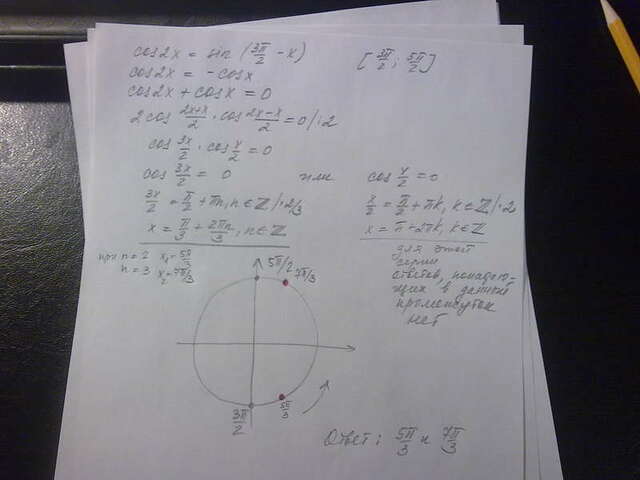 cos2x = sin (3π/2 - x)    [3π/2; 5π/2]
cos2x = -cosx
cos2x + cosx = 0
2cos (2x+x)/2 · cos (2x-x)/2 = 0 /:2
cos 3x/2 · cos x/2 = 0
cos 3x/2 = 0    или    cos x/2 = 0
3x/2 = π/2 + πn, n∈ℤ /·2/3    x/2 = π/2 + πk, k∈ℤ /·2
x = π/3 + 2πn/3, n∈ℤ    x = π + 2πk, k∈ℤ
при n = 2 x₁ = 5π/3
n = 3 x₂ = 7π/3
для этой
серии
ответов, попадаю-
щих в данный
промежуток
нет
5π/2
7π/3
3π/2
5π/3
Ответ: 5π/3 и 7π/3